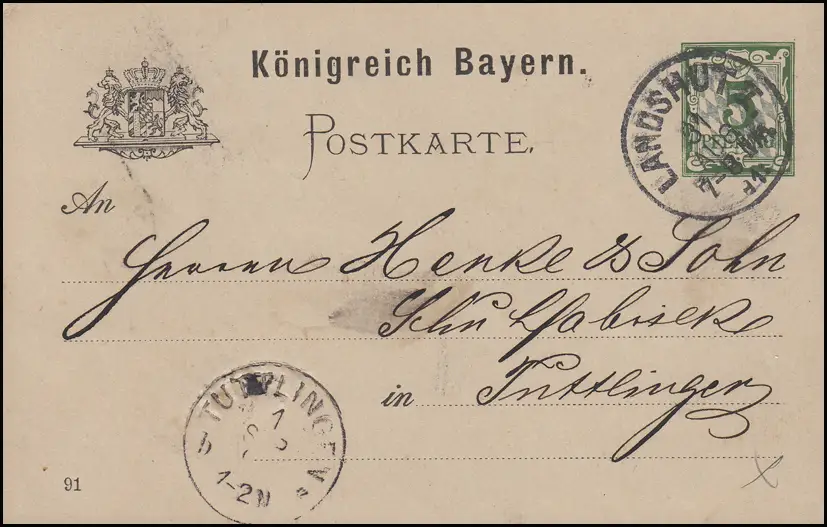 Königreich Bayern.
POSTKARTE.
5
LANDSHUT
7-8 NM
An
Herren Henke & Sohn
Schuhfabrik
in Tuttlingen
TUTTLINGEN
1-2N
91